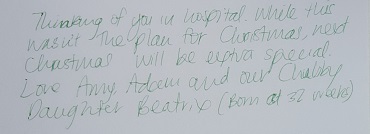 Thinking of you in hospital. While this
wasn't the plan for Christmas, next
Christmas will be extra special.
Love Amy, Adam and our Chubby
Daughter Beatrix (Born at 32 weeks)